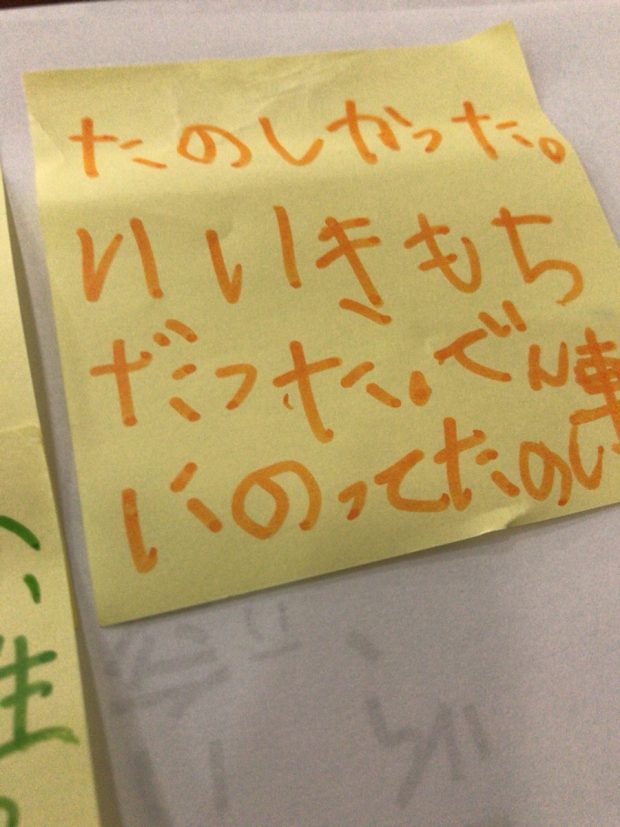 たのしかった。
いいきもち
だった。でん車
にのってたのし